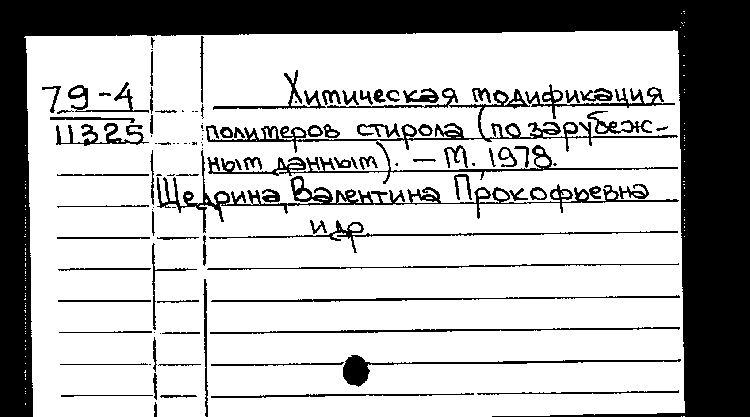 79-4
11325
Химическая модификация
полимеров стирола (по зарубеж-
ным данным). - М. 1978.
Щедрина, Валентина Прокофьевна
и др.